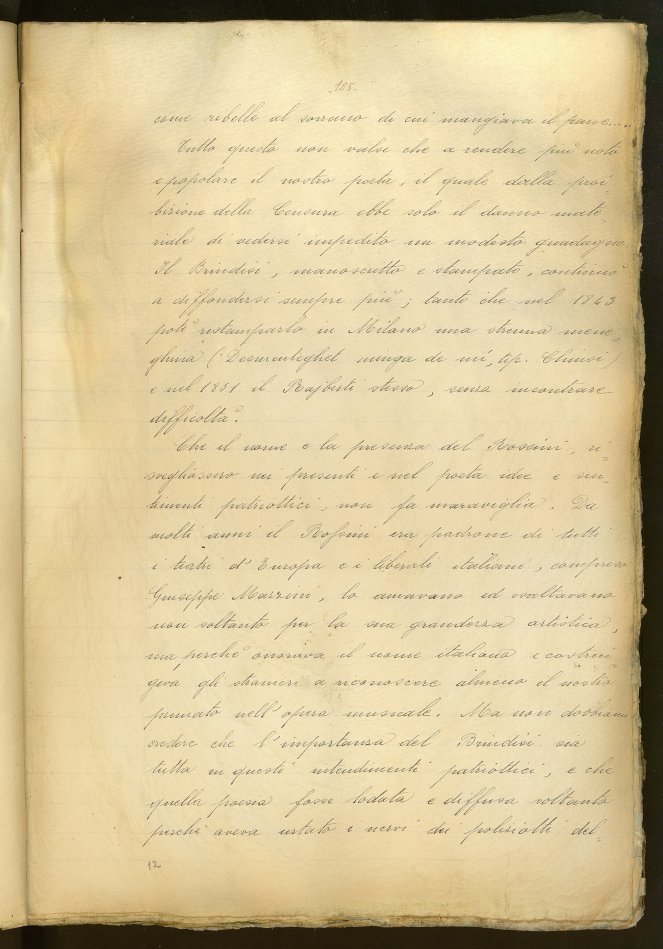 -105-
come ribelle al sovrano di cui mangiava il pane.....
Tutto questo non valse che a rendere più noto
e popolare il nostro poeta, il quale dalla proi-
bizione della Censura ebbe solo il danno mate-
riale di vedersi impedito un modesto guadagno.
Il Brindisi, manoscritto e stampato, continuò
a diffondersi sempre più; tanto che nel 1843
potè ristamparlo in Milano una strenna mene-
ghina (Desmenteghet minga de mi, tip. Chiusi)
e nel 1851 il Rajberti stesso, senza incontrare
difficoltà.
Che il nome e la presenza del Rossini, ri-
svegliassero nei presenti e nel poeta idee e sen-
timenti patriottici, non fa maraviglia. Da
molti anni il Rossini era padrone di tutti
i teatri d'Europa e i liberali italiani, compreso
Giuseppe Mazzini, lo amavano ed esaltavano
non soltanto per la sua grandezza artistica,
ma perchè onorava il nome italiano e costrin-
geva gli stranieri a riconoscere almeno il nostro
primato nell'opera musicale. Ma non dobbiamo
credere che l'importanza del Brindisi sia
tutta in questi intendimenti patriottici, e che
quella poesia fosse lodata e diffusa soltanto
perchè aveva urtato i nervi dei poliziotti del-
12